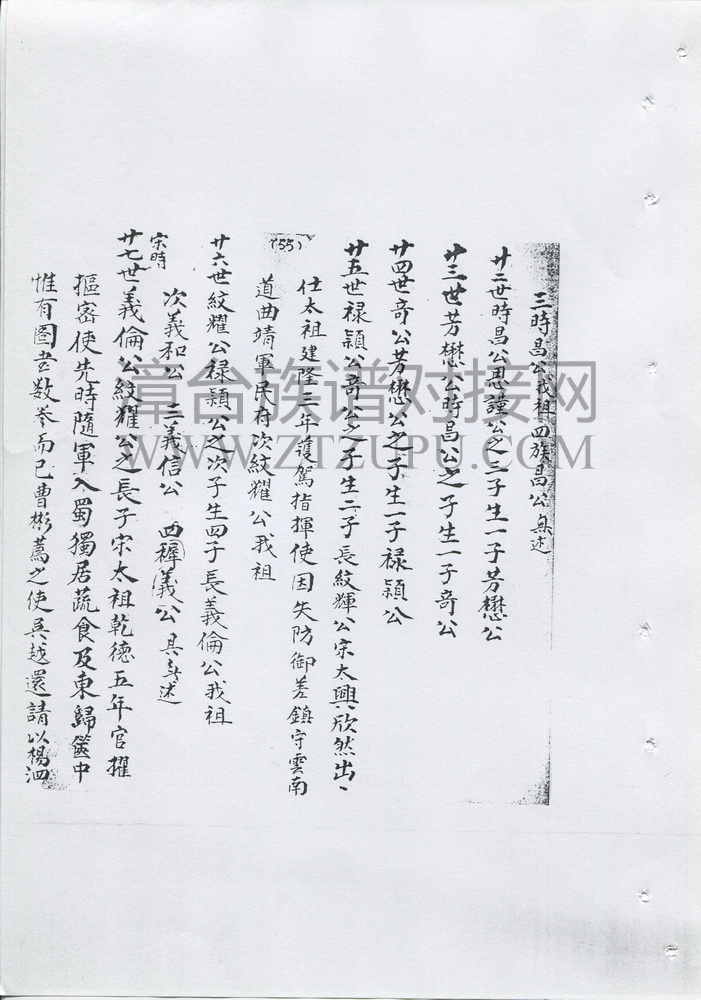 三時昌公我祖四族昌公無述
廿二世時昌公思謹公之三子生一子芳懋公
廿三世芳懋公時昌公之子生一子奇公
廿四世奇公芳懋公之子生一子禄穎公
廿五世禄穎公奇公之子生二子長紋輝公宋太興欣然出
仕太祖建隆三年護駕指揮使因失防御差鎮守雲南
(55)
道曲靖軍民府次紋耀公我祖
廿六世紋耀公禄穎公之次子生四子長義倫公我祖
宋時
次義和公 三義信公 四義公 具述
廿七世義倫公紋耀公之長子宋太祖乾德五年官擢
樞密使先時隨軍入蜀獨居蔬食及東歸篋中
惟有圖書数卷而已曹彬薦之使吳越還請以楊泗
章台族谱对接网
WWW.ZTZUPU.COM